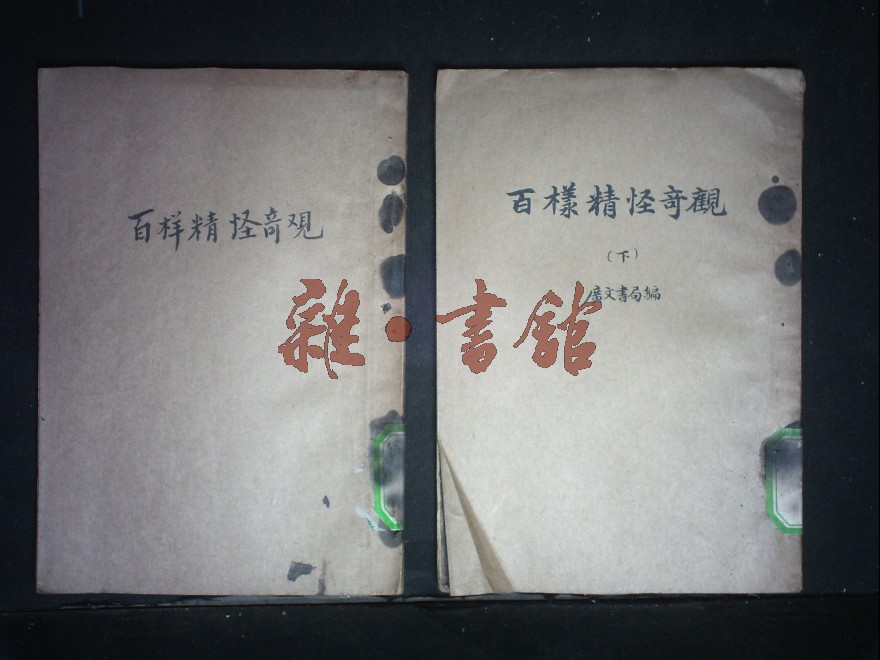 百样精怪奇观
百樣精怪奇觀
(下)
廣文書局編
雜·書館